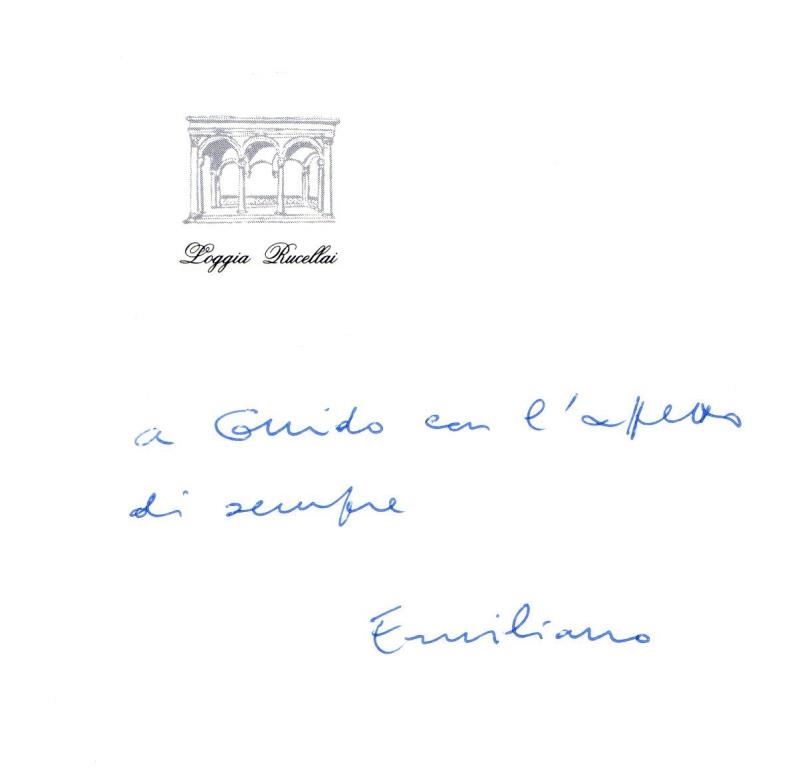 Loggia Rucellai
a Guido con l'affetto
di sempre
Emiliano